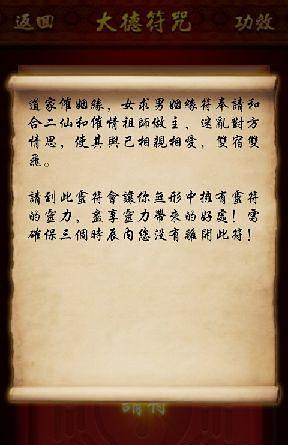 返回 大德符咒 功效
道家催姻緣，女求男姻緣符奉請和
合二仙和催情祖師做主，迷亂對方
情思，使其與己相親相愛，雙宿雙
飛。
請到此靈符會讓你無形中擁有靈符
的靈力，盡享靈力帶來的好處！需
確保三個時辰內您沒有離開此符！
請符